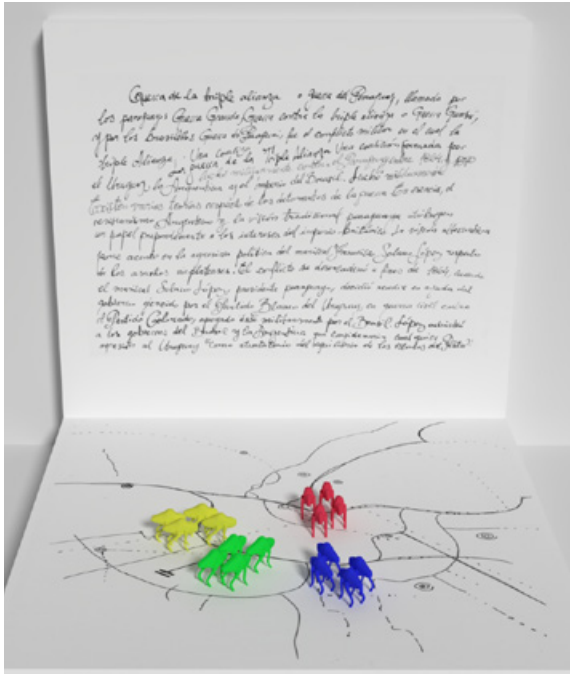 Guerra de la triple alianza o guerra del Paraguay, llamada por
los paraguayos Guerra Grande, Guerra contra la triple alianza o Guerra Guasú,
y por los brasileños Guerra do Paraguai, fue el conflicto militar en el cual la
triple Alianza. Una coalición formada por
el Uruguay, la Argentina y el imperio del Brasil.
Existen varias teorías respecto de los detonantes de la guerra. En esencia, el
revisionismo Argentino y la visión tradicional paraguaya atribuyen
un papel preponderante a los intereses del imperio Británico. La visión alternativa
pone acento en la agresiva política del mariscal Francisco Solano López respecto
de los asuntos rioplatenses. El conflicto se desencadenó a fines de cuando
el mariscal Solano López, presidente paraguayo, decidió acudir en ayuda del
gobierno ejercido por el Partido Blanco del Uruguay, en guerra civil contra
el Partido Colorado, apoyado éste militarmente por el Brasil. López advirtió
a los gobiernos del Brasil y la Argentina que consideraría cualquier
agresión al Uruguay "como atentatorio del equilibrio de los Estados del Plata".